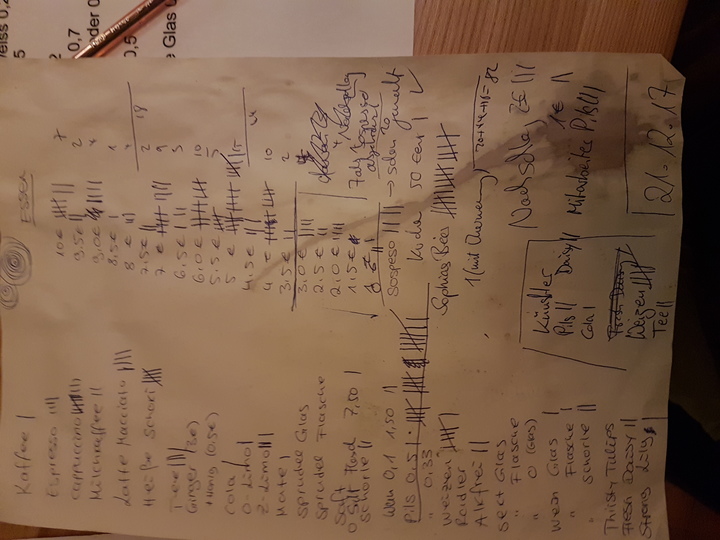 Kaffee |
Espresso ||||
Cappuccino |||| |||
Milchkaffee ||
Latte Macciato ||||
Heiße Schoki ||||
Tee |||
Ginger (3€)
+ Honig (0,5€)
Cola |
O-Limo |
Z-Limo |||
Mate |
Sprudel Glas
Sprudel Flasche
Saft
7,50 |
Schorle ||
Wein 0,1 1,50 ||
Pils 0,5
" 0,33
Weizen
Radler
Alkfrei ||
Sect Glas
" Flasche
" O (Glas)
Wein Glas |
" Flasche |
" Schorle ||
Thirsty Tulips
Fresh Daisy ||
Strong Lily
Essen
10 € 7
9.5 € || 2
9,0 €
8,5 € | 1
8 € |||
18
7.5 € || 2
7 € 9
6.5 € ||| 3
6.0 € 10
5.5 € 5
5 € 15
4.5 € ||
44
4 € 10
3.5 € || 2
3.0 € ||||
2.5 € ||
2.0 € ||||
1.5 €
7 als Sospeso
20
Sospeso |||| → schon gezahlt
Kuchen 50 cent | ✓
Sophias Bees
20+44+18=82
Nachschlag 2€ |||
1€ ||
Mitarbeiter Pils |||
Künstler
Pils || Daisy ||
Cola |
Fresh Daisy
Weizen
Tee ||
21.12.17
0,7
oder 0
0,5
e Glas